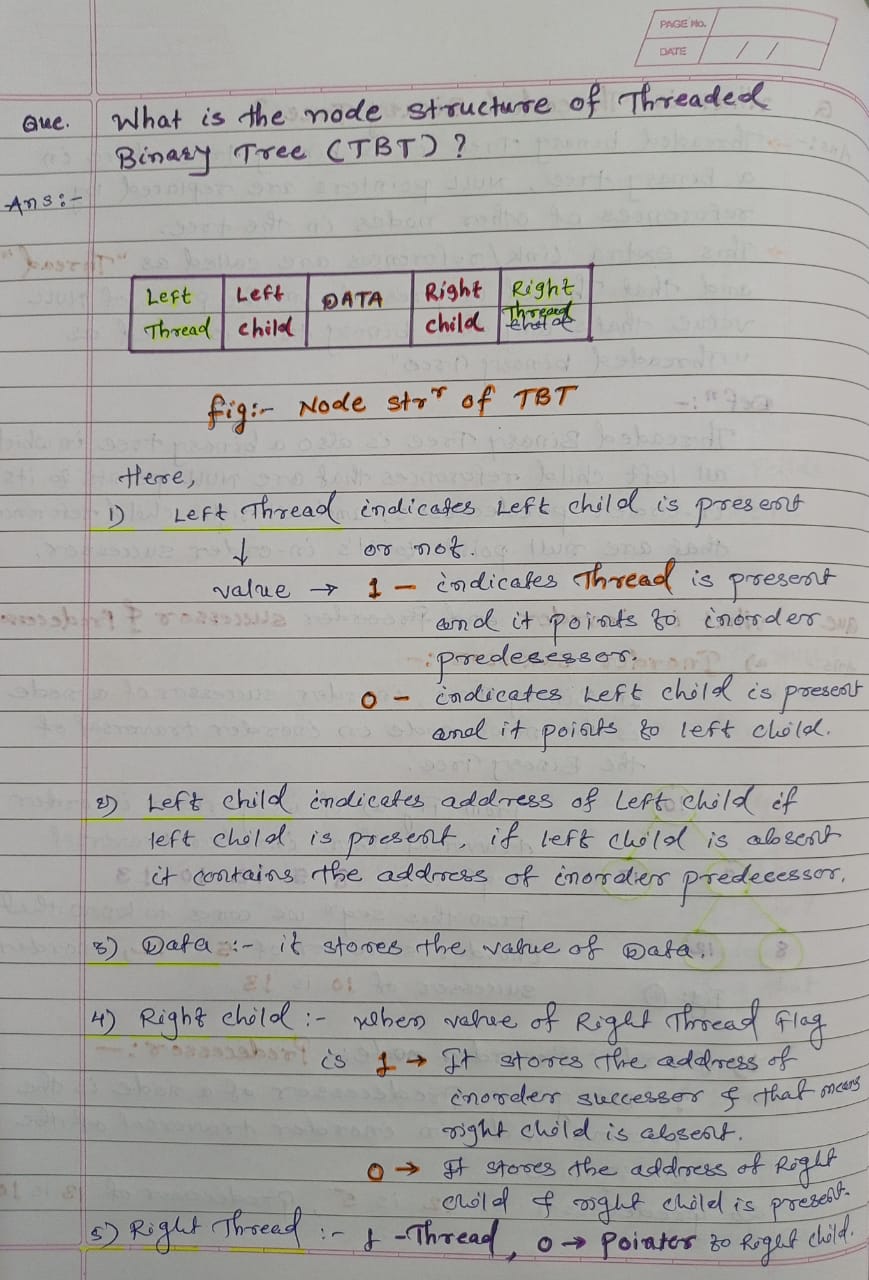 PAGE No.
DATE / /
Que. What is the node structure of Threaded
Binary Tree (TBT) ?
Ans :-
Left Left DATA Right Right
Thread child child Thread
fig:- Node strr of TBT
Here,
1) Left Thread indicates Left child is present
↓ or not.
value → 1 - indicates Thread is present
and it points to inorder
predecessor.
0 - indicates Left child is present
and it points to left child.
2) Left child indicates address of Left child if
left child is present, if left child is absent
it contains the address of inorder predecessor.
3) Data :- it stores the value of Data.
4) Right child :- when value of Right Thread Flag
is 1 → It stores the address of
inorder successor & that means
right child is absent.
0 → It stores the address of Right
child & right child is present.
5) Right Thread :- 1 - Thread, 0 → Pointer to Right child.